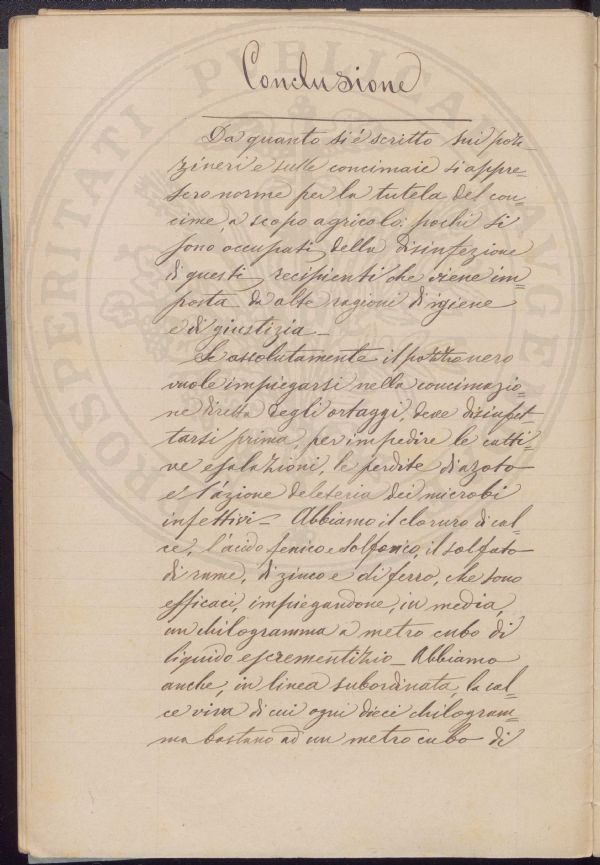 Conclusione
Da quanto si è scritto sui poz-
zineri e sulle concimaie si appre-
sero norme per la tutela del con-
cime, a scopo agricolo: pochi si
sono occupati della disinfezione
di questi recipienti che viene im-
posta da alte ragioni d'igiene
e di giustizia_
Se assolutamente il pozzonero
vuole impiegarsi nella concimazio-
ne diretta degli ortaggi, deve disinfet-
tarsi prima, per impedire le catti-
ve esalazioni, le perdite di azoto
e l'azione deleteria dei microbi
infettivi_ Abbiamo il cloruro di cal-
ce, l'acido fenico e solfonico, il solfato
di rame, di zinco e di ferro, che sono
efficaci, impiegandone, in media,
un chilogramma a metro cubo di
liquido escrementizio_ Abbiamo
anche, in linea subordinata, la cal-
ce viva di cui ogni dieci chilogram-
ma bastano ad un metro cubo di
PROSPERITATI PUBLICAE AUGENDAE